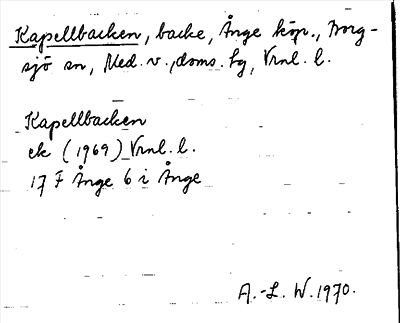 Kapellbacken, backe, Ånge köp., Borg-
sjö sn, Med. v., doms. hg, Vrnl. l.
Kapellbacken
ek (1969) Vrnl. l.
17 F Ånge 6 i Ånge
A.-L. W. 1970.